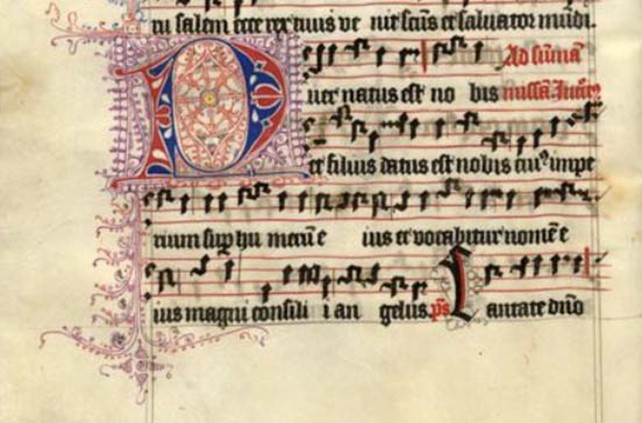 tu salem ecce rex tuus ve nit scūs et saluator mūdi.
Ad sūmā
Puer natus est no bis missā Introitꝰ
et filius datus est nobis cuiꝰ impe
rium sup hu merū e ius et vocabitur nomē e
ius magni consili i an gelus. p̄s Cantate dn̄o